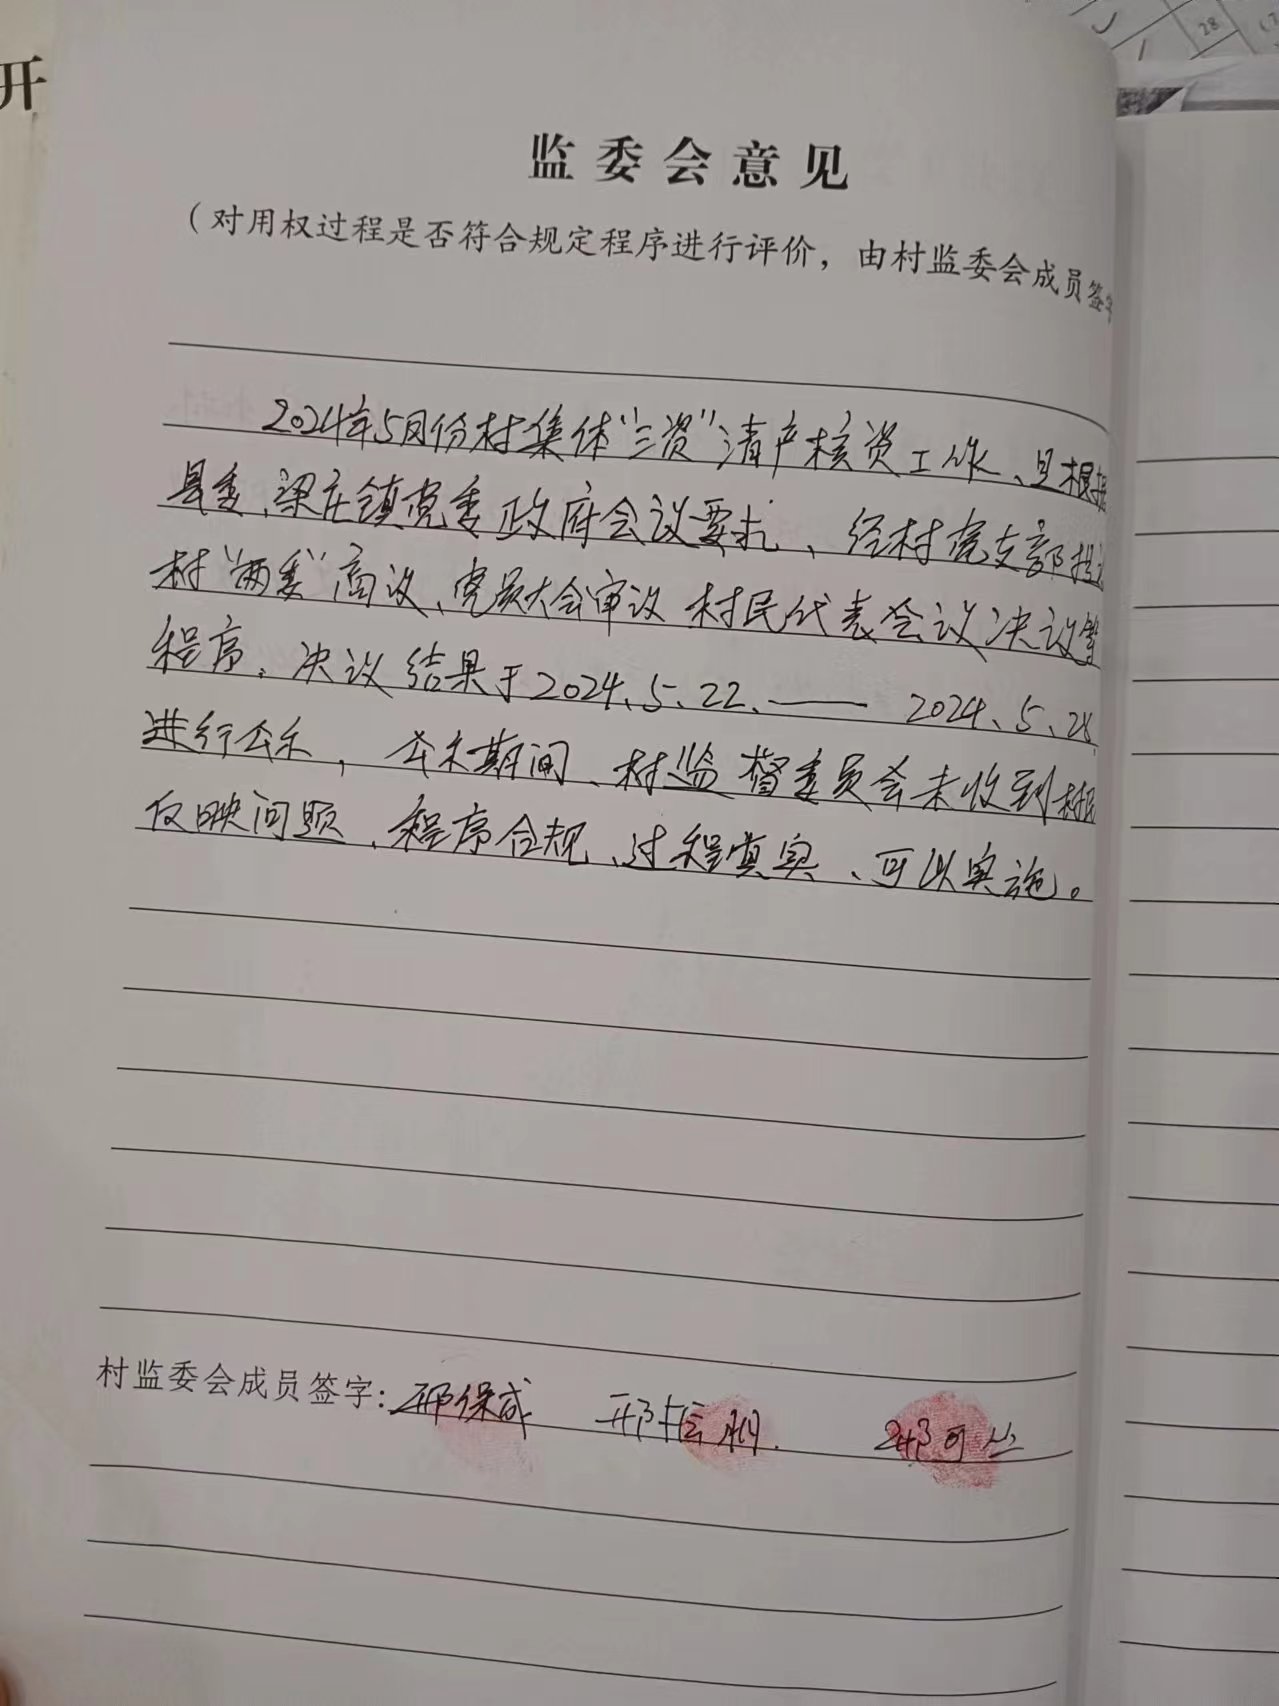 开
28
监委会意见
(对用权过程是否符合规定程序进行评价，由村监委会成员签字
2024年5月份村集体“三资”清产核资工作、且根据
县委、梁庄镇党委政府会议要求、经村党支部提议
村“两委”商议、党员大会审议 村民代表会议决议等
程序。决议结果于2024、5、22、—— 2024、5、28、
进行公示，公示期间、村监督委员会未收到村民
反映问题、程序合规、过程真实、可以实施。
村监委会成员签字: 邢保成 邢 邢可